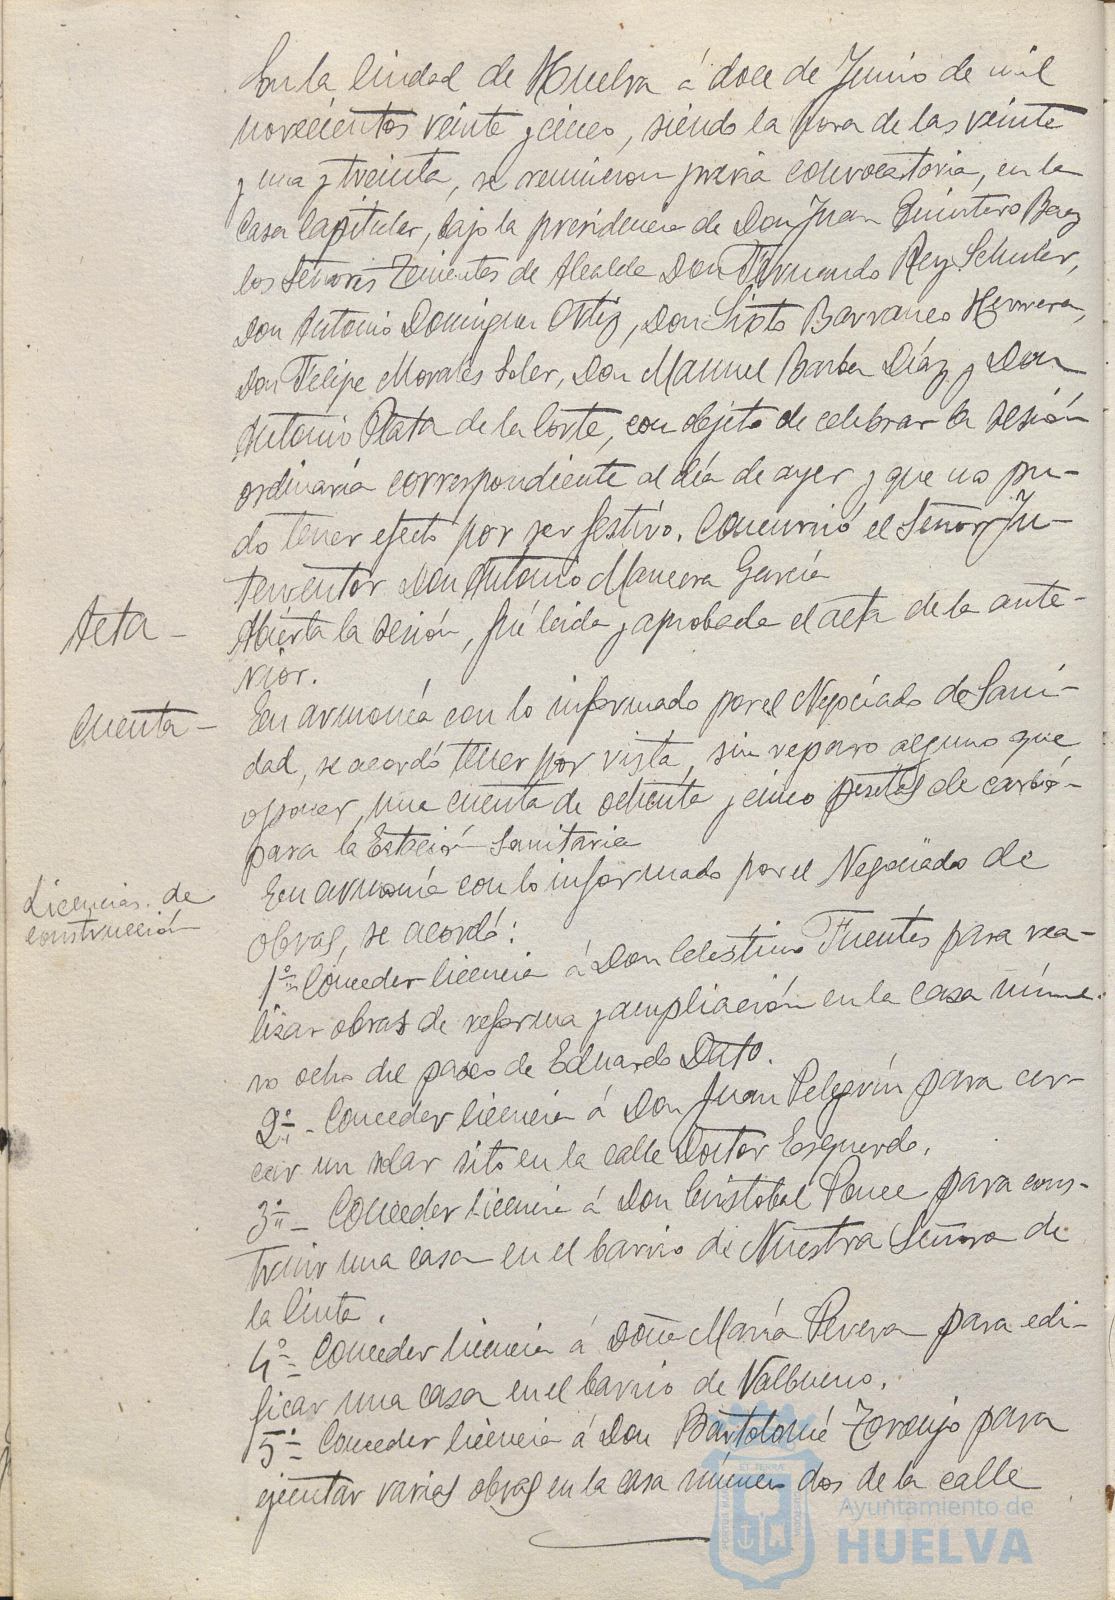 En la Ciudad de Huelva á doce de Junio de mil
novecientos veinte y cinco, siendo la hora de las veinte
y una y treinta, se reunieron previa convocatoria, en la
Casa Capitular, bajo la presidencia de Don Juan Quintero Baez
los Señores Tenientes de Alcalde Don Fernando Rey Schuler,
Don Antonio Dominguez Ortiz, Don Sixto Barranco Herrera,
Don Felipe Morales Soler, Don Manuel Barba Díaz y Don
Antonio Plata de la Corte, con objeto de celebrar la sesión
ordinaria correspondiente al día de ayer y que no pu-
do tener efecto por ser festivo. Concurrió el Señor In-
terventor Don Antonio Mancera García
Acta - Abierta la sesión, fué leida y aprobada el acta de la ante-
rior.
Cuenta - En armonía con lo informado por el Negociado de Sani-
dad, se acordó tener por vista, sin reparo alguno que
oponer, una cuenta de ochenta y cinco pesetas de carbón
para la Estación Sanitaria
Licencias de
construcción
En armonía con lo informado por el Negociado de
obras, se acordó:
1º Conceder licencia á Don Celestino Fuentes para rea-
lizar obras de reforma y ampliación en la casa núme-
ro ocho del paseo de Eduardo Dato.
2º - Conceder licencia á Don Juan Pelegrín para cer-
car un solar sito en la calle Doctor Esquerdo.
3º - Conceder licencia á Don Cristobal Ponce para cons-
truir una casa en el barrio de Nuestra Señora de
la Cinta.
4º - Conceder licencia á Doña María Perera para edi-
ficar una casa en el barrio de Valbueno.
5º - Conceder licencia á Don Bartolomé Toronjo para
ejecutar varias obras en la casa número dos de la calle
Ayuntamiento de
HUELVA